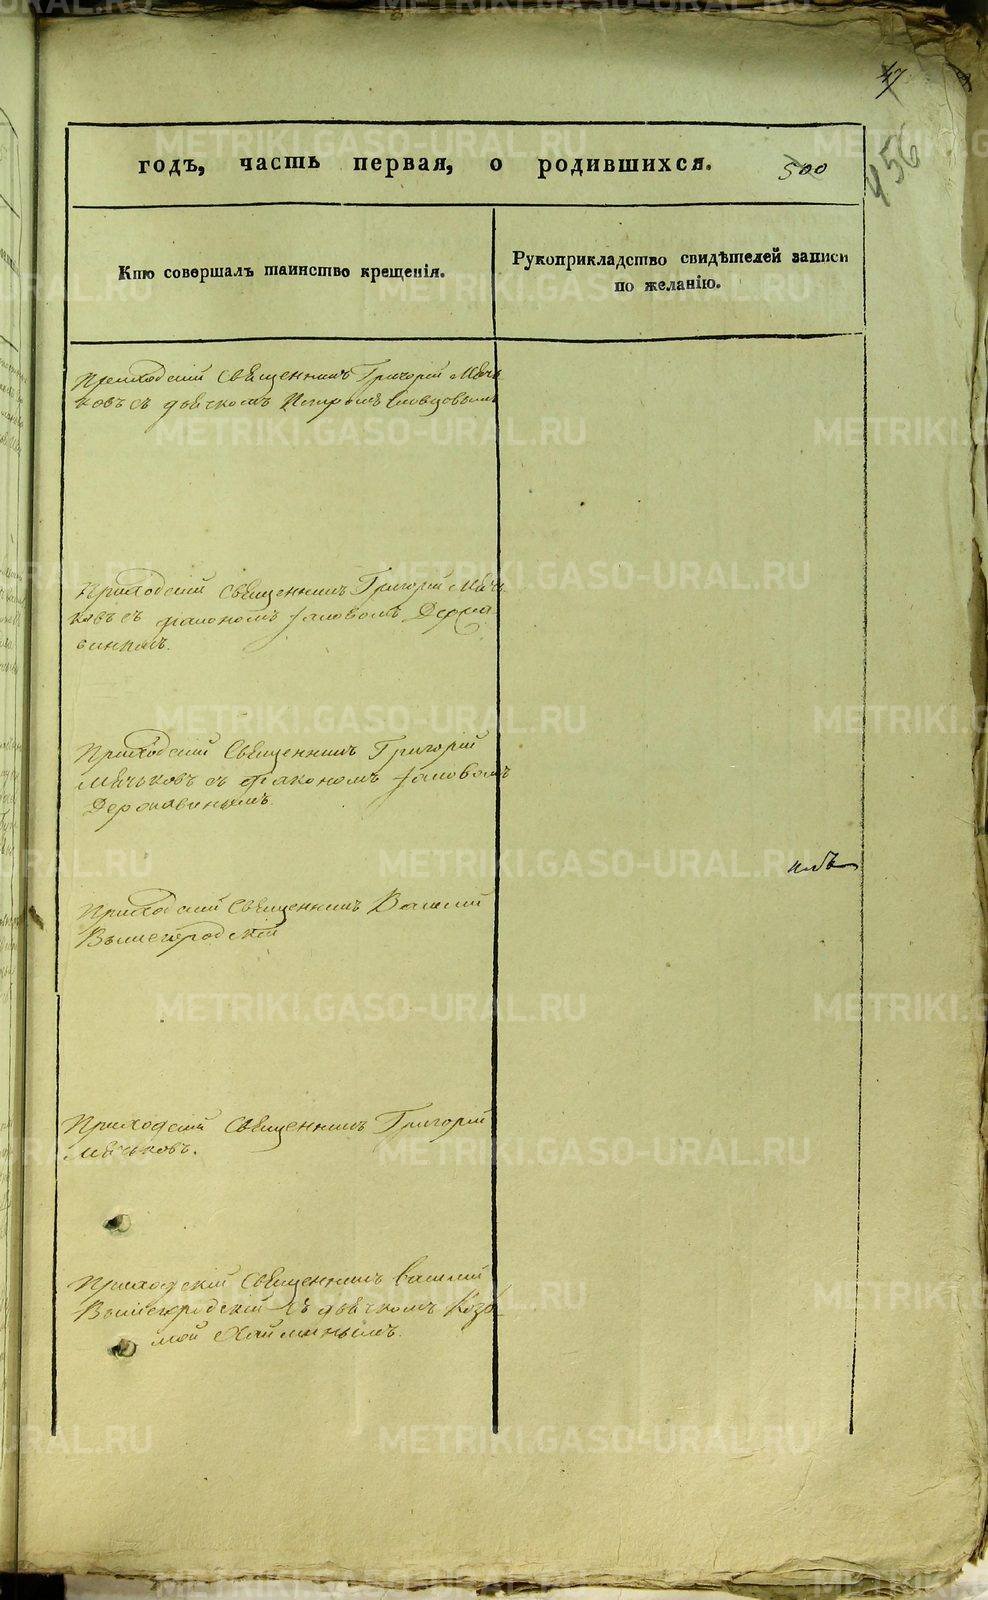 47
456
годъ, часть первая, о родившихся. 500
Кто совершалъ таинство крещенія.
Рукоприкладство свидѣтелей записи
по желанію.
Приходскій Священникъ Григорій Мячь
ковъ съ дьячкомъ Петромъ Словцовымъ
Приходскій Священникъ Григорій Мячь
ковъ съ діакономъ Іаковомъ Держа
винымъ.
Приходскій Священникъ Григорій
Мячьковъ съ діакономъ Іаковомъ
Державинымъ.
Приходскій Священникъ Василій
Вышегородскій
Приходскій Священникъ Григорій
Мячьковъ.
Приходскій Священникъ Василій
Вышегородскій съ дьячкомъ Козь
мой
METRIKI.GASO-URAL.RU